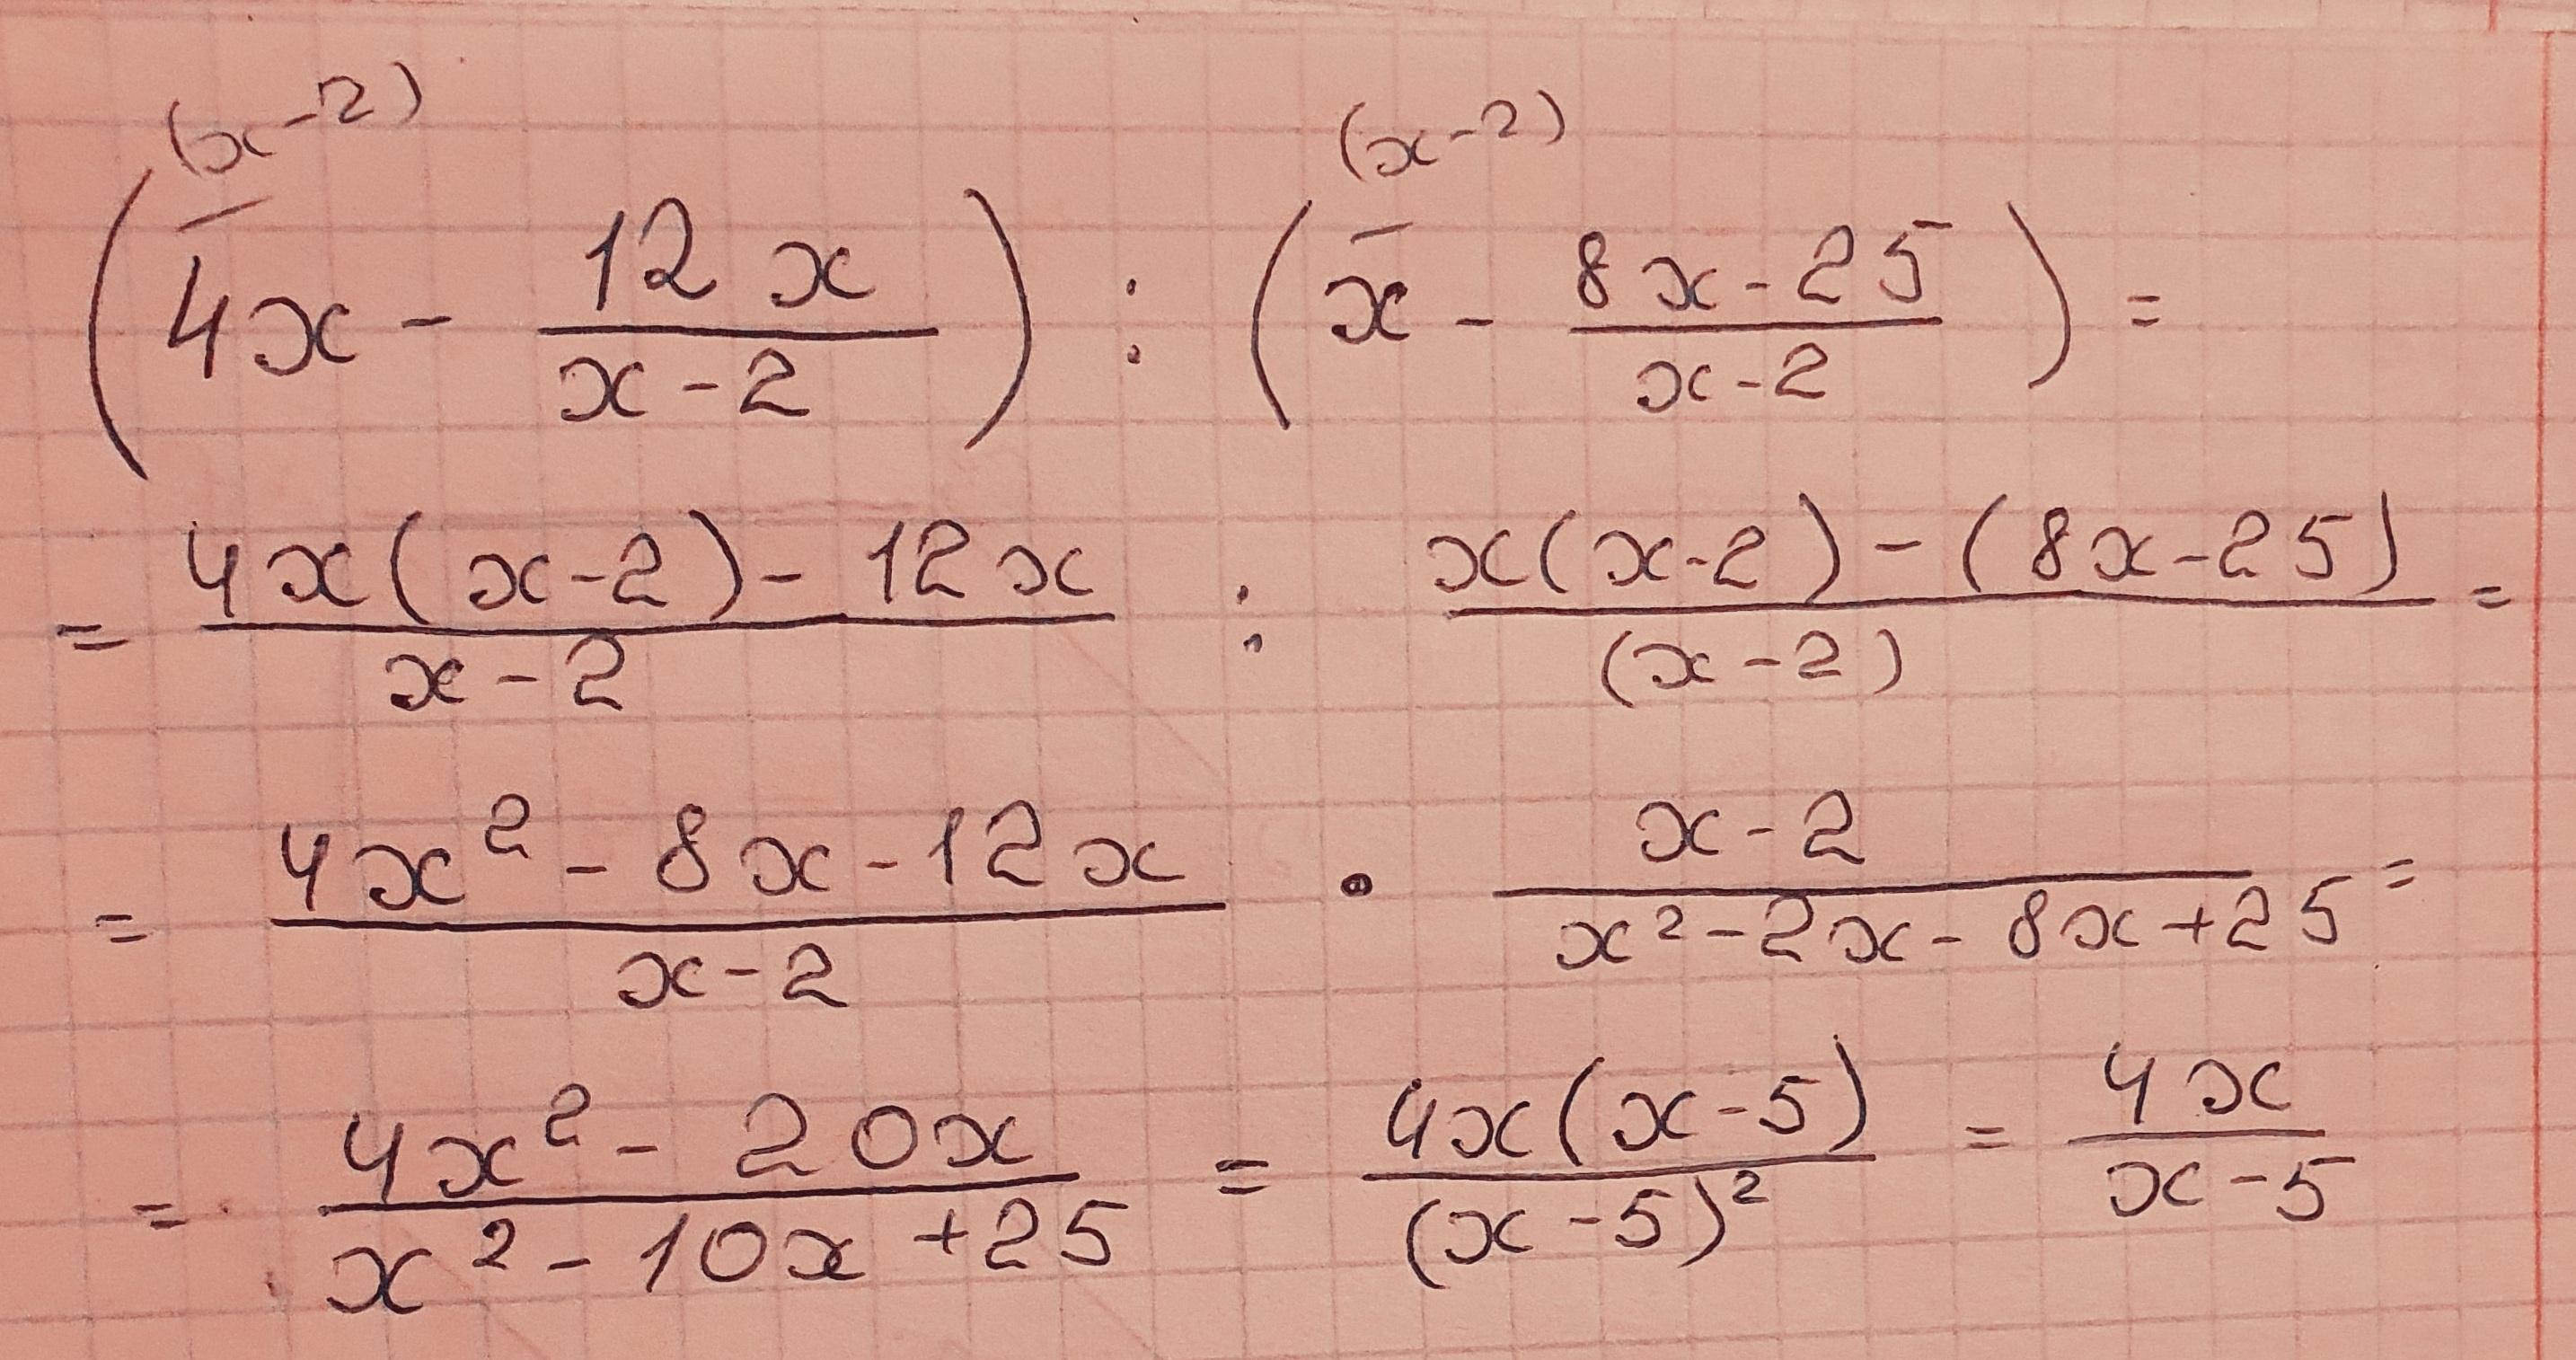 (x-2) (x-2)
(4x - 12x/(x-2)) : (x - (8x-25)/(x-2)) =
= (4x(x-2) - 12x)/(x-2) : (x(x-2) - (8x-25))/(x-2) =
= (4x² - 8x - 12x)/(x-2) · (x-2)/(x² - 2x - 8x + 25) =
= (4x² - 20x)/(x² - 10x + 25) = 4x(x-5)/(x-5)² = 4x/(x-5)